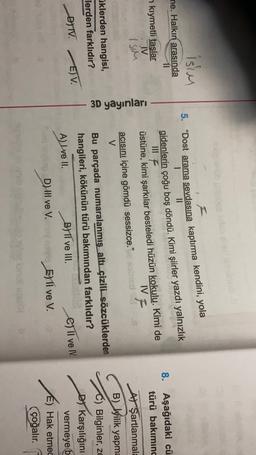 isim
ne. Halkın arasında
II
n kıymetli taşlar
IV
isim
üklerden hangisi,
lerden farklıdır?
D) IV. E) V.
3D yayınları
5. "Dost arama sevdasına kaptırma kendini, yola
I II
gidenlerin çoğu boş döndü. Kimi şiirler yazdı yalnızlık
III
üstüne, kimi şarkılar besteledi hüzün kokulu. Kimi de
IV
acısını içine gömdü sessizce."
V
Bu parçada numaralanmış altı çizili sözcüklerden
hangileri, kökünün türü bakımından farklıdır?
A) I ve II. B) II ve III. C) II ve IV.
D) III ve V. E) II ve V.
8. Aşağıdaki cü
türü bakımınd
A) Şartlanmala
B) İyilik yapma
C) Bilginler, ze
D) Karşılığını
vermeye b
E) Hak etmed
çoğalır.